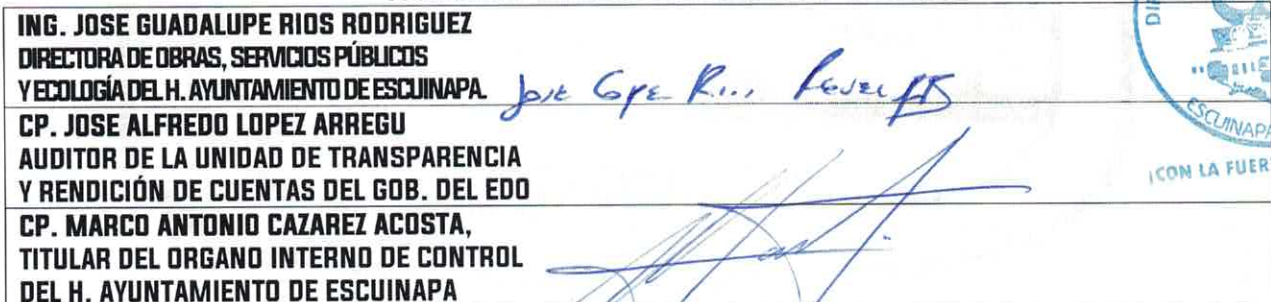 ING. JOSE GUADALUPE RIOS RODRIGUEZ
DIRECTORA DE OBRAS, SERVICIOS PÚBLICOS
Y ECOLOGÍA DEL H. AYUNTAMIENTO DE ESCUINAPA.
CP. JOSE ALFREDO LOPEZ ARREGU
AUDITOR DE LA UNIDAD DE TRANSPARENCIA
Y RENDICIÓN DE CUENTAS DEL GOB. DEL EDO
CP. MARCO ANTONIO CAZAREZ ACOSTA,
TITULAR DEL ORGANO INTERNO DE CONTROL
DEL H. AYUNTAMIENTO DE ESCUINAPA
DI
ESCUINAPA
¡CON LA FUER